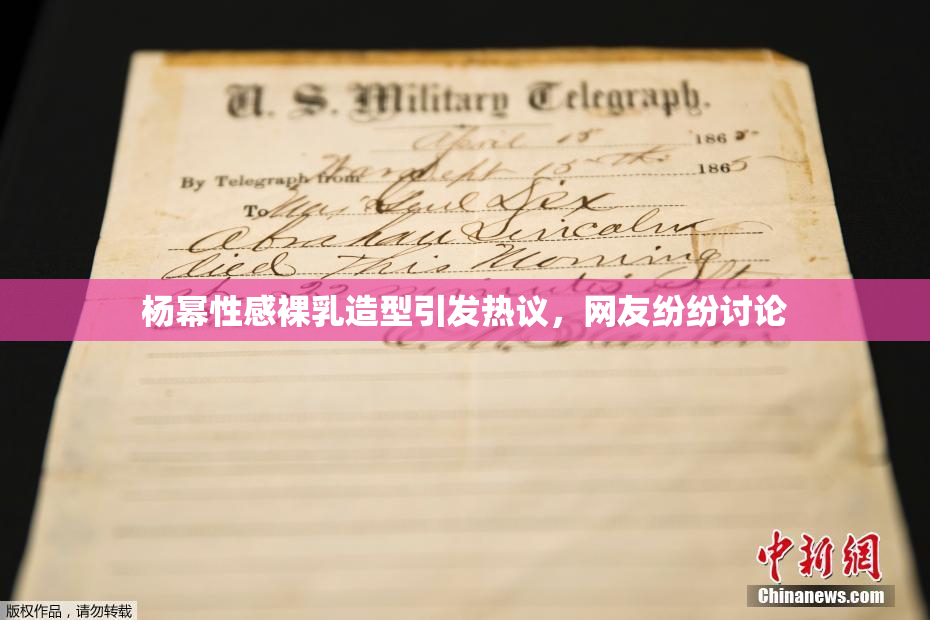 U. S. Military Telegraph.
April 15 1865
By Telegraph from War Dept 15th 1865
To Maj Genl Dix
Abraham Lincoln
died This Morning
22 minutes after
杨幂性感裸乳造型引发热议，网友纷纷讨论
E. M. Stanton
中新网
Chinanews.com
版权作品，请勿转载